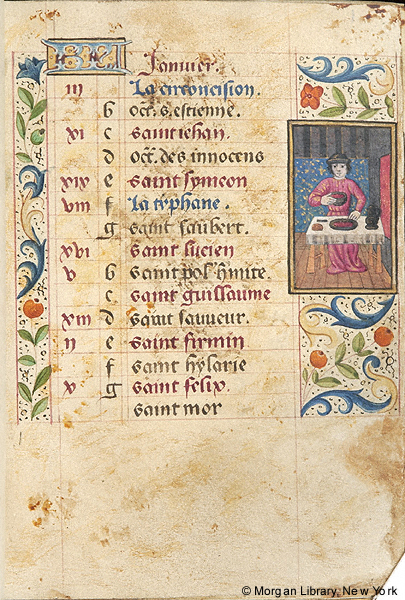 KL Januier.
iii La circoncision.
b oct. s. estienne.
xi c saint iehan.
d oct. des innocens
xix e saint symeon
viii f La typhane.
g saint saubert.
xvi saint lucien
v b saint pol hmite.
c saint guillaume
xiii d saint sauueur.
ii e saint firmin
f saint hylarie
x g saint felix.
saint mor
© Morgan Library, New York